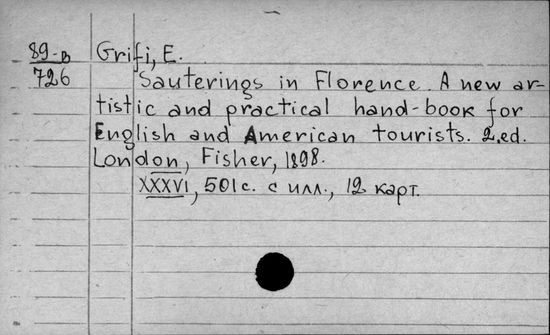 89-в Grifi, E.
726 Sauterings in Florence. A new ar-
tistic and practical hand-book for
English and American tourists. 2.ed.
London, Fisher, 1898.
XXXVI, 501 с. с илл., 12 карт.